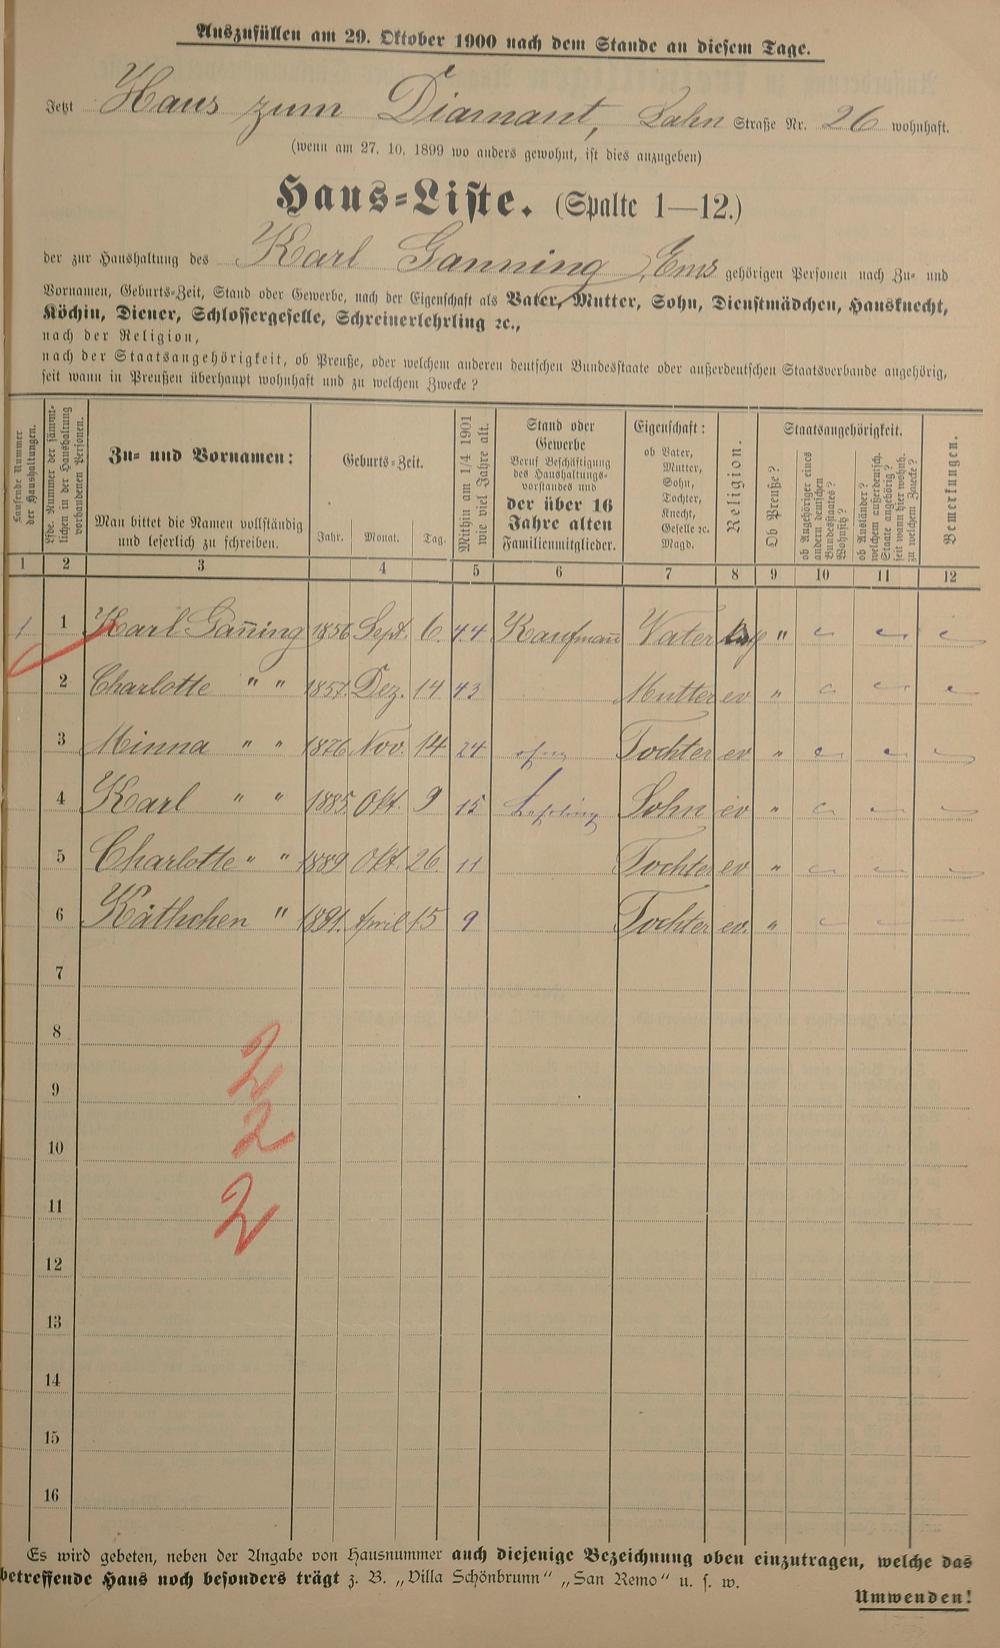 Auszufüllen am 29. Oktober 1900 nach dem Stande an diesem Tage.
Jetzt Haus zum Diamant, Lahn Straße Nr. 26 wohnhaft.
(wenn am 27. 10. 1899 wo anders gewohnt, ist dies anzugeben)
Haus-Liste. (Spalte 1—12.)
der zur Haushaltung des Karl Ganning, Ems gehörigen Personen nach Zu- und
Vornamen, Geburts-Zeit, Stand oder Gewerbe, nach der Eigenschaft als Vater, Mutter, Sohn, Dienstmädchen, Hausknecht,
Köchin, Diener, Schlossergeselle, Schreinerlehrling ꝛc.,
nach der Religion,
nach der Staatsangehörigkeit, ob Preuße, oder welchem anderen deutschen Bundesstaate oder außerdeutschen Staatsverbande angehörig,
seit wann in Preußen überhaupt wohnhaft und zu welchem Zwecke?
Laufende Nummer der Haushaltungen.
Lfde. Nummer der sämmtlichen in der Haushaltung vorhandenen Personen.
Zu- und Vornamen:
Man bittet die Namen vollständig
und leserlich zu schreiben.
Geburts-Zeit.
Jahr. Monat. Tag.
Mithin am 1/4 1901 wie viel Jahre alt.
Stand oder
Gewerbe
Beruf Beschäftigung
des Haushaltungs-
vorstandes und
der über 16
Jahre alten
Familienmitglieder.
Eigenschaft:
ob Vater,
Mutter,
Sohn,
Tochter,
Knecht,
Geselle ꝛc.
Magd.
Religion.
Staatsangehörigkeit.
Ob Preuße?
ob Angehöriger eines andern deutschen Bundesstaates? Wohnsitz?
ob Ausländer? welchem außerdeutsch. Staate angehörig? seit wann hier wohnh. zu welchem Zwecke?
Bemerkungen.
1 2 3 4 5 6 7 8 9 10 11 12
1 1 Karl Gan̄ing 1856 Sept. 6. 44 Kaufman̄ Vater "
2 Charlotte " " 1857 Dez. 14 43 Mutter ev "
3 Minna " " 1876 Nov. 14 24 Tochter ev "
4 Karl " " 1885 Okt. 9 15 Lehrling Sohn ev "
5 Charlotte " " 1889 Okt. 26. 11 Tochter ev "
6 Käthchen " 1891. April 15 9 Tochter ev. "
7
8
2
9
2
10
11
2
12
13
14
15
16
Es wird gebeten, neben der Angabe von Hausnummer auch diejenige Bezeichnung oben einzutragen, welche das
betreffende Haus noch besonders trägt z. B. „Villa Schönbrunn“ „San Remo“ u. s. w.
Umwenden!